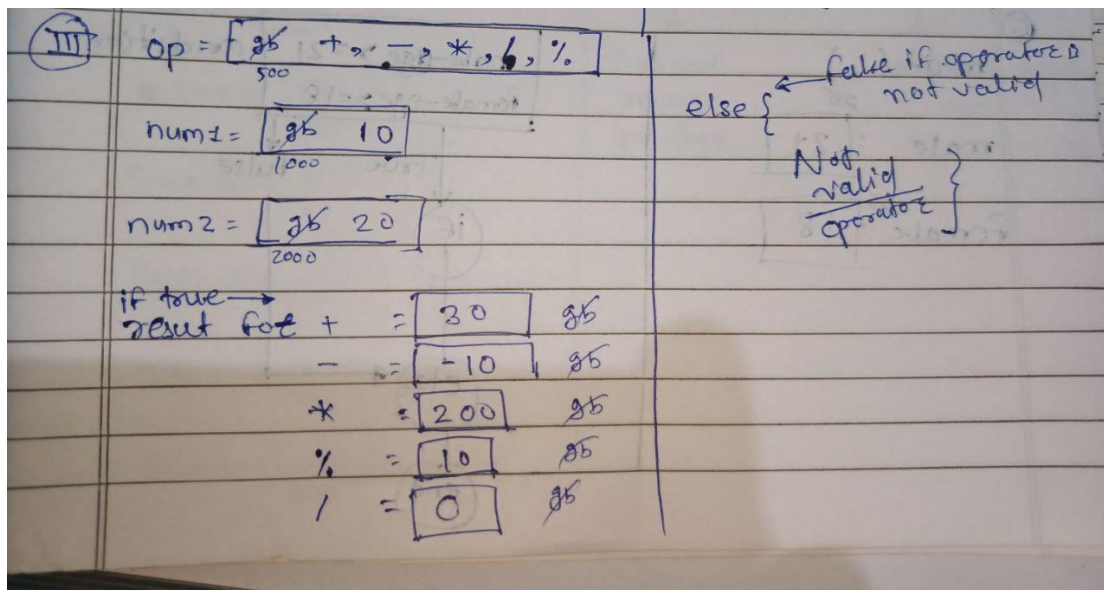 III op = gb +, -, *, /, %
500
num1 = gb 10
1000
num2 = gb 20
2000
if true →
resut for + = 30 gb
- = -10 gb
* = 200 gb
% = 10 gb
/ = 0 gb
false if oprator is
not valid
else {
Not
valid
oporator }